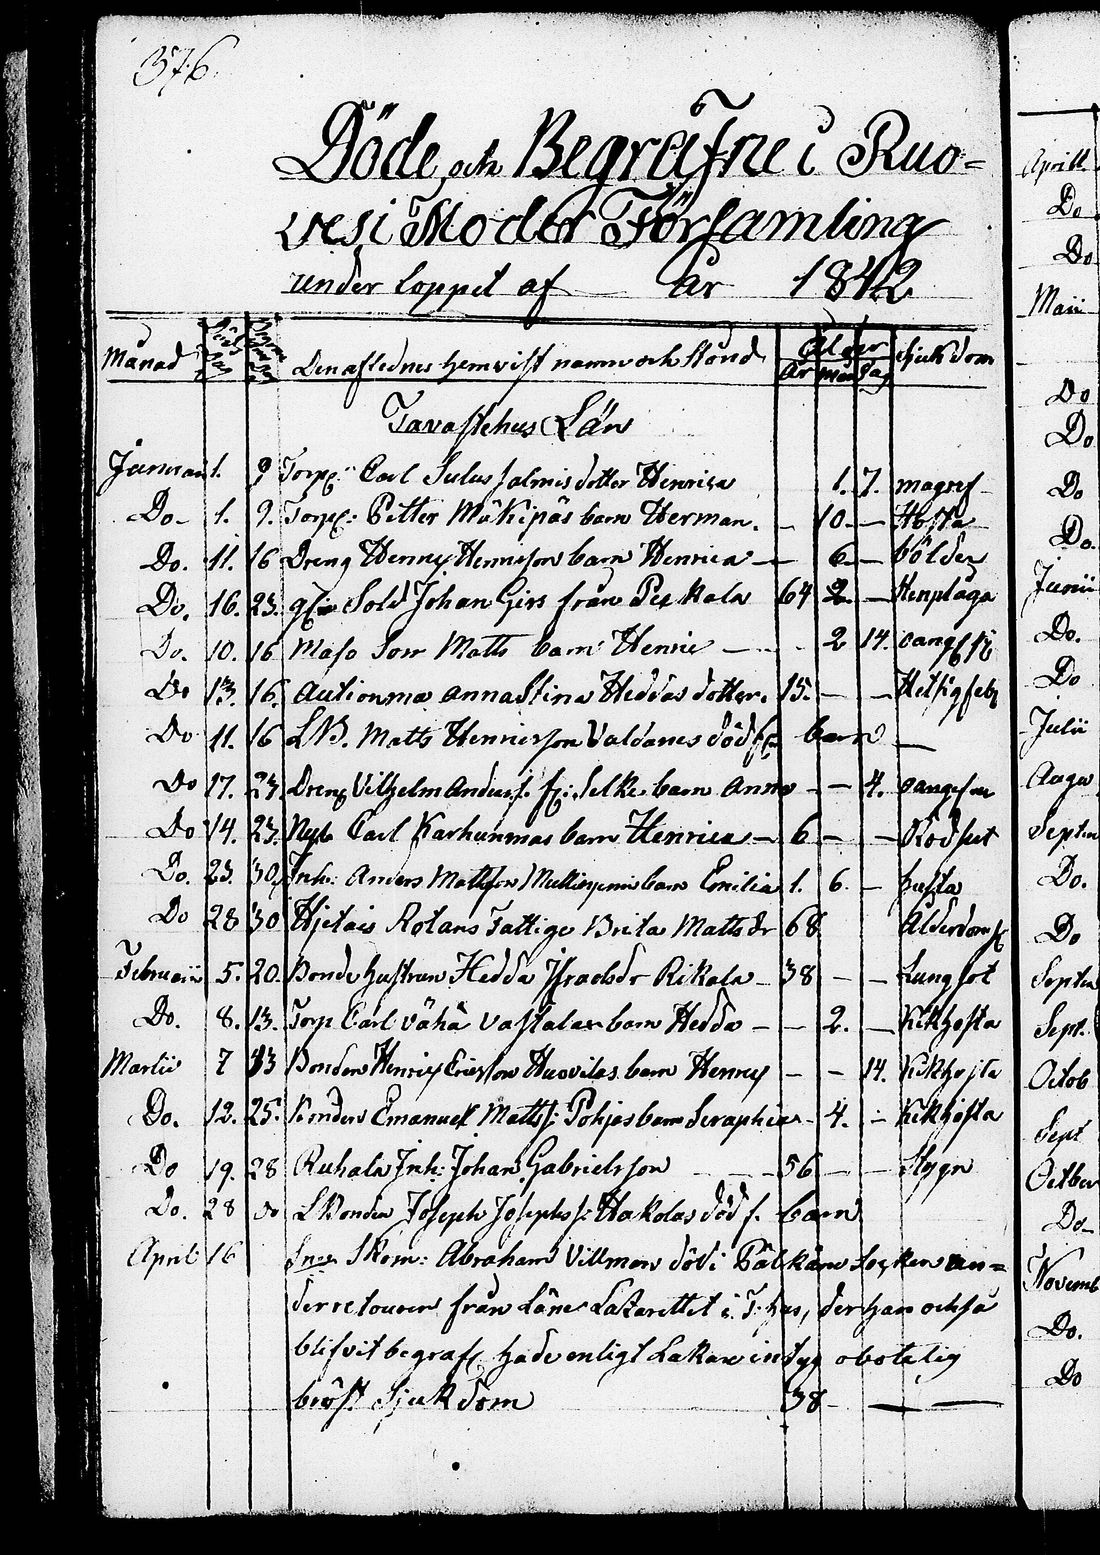 376.
Döde och Begrafne i Ruo=
vesi Moder Församling
under loppet af År 1842
Månad Död dag Den aflednes hemvist namn och stånd Ålder Sjukdom
År mån dag
Tavastehus Län
Januari 1. 9 Torp: Carl Sulus dotter Henrica 1. 7. magref
Do 1. 9. Torp: Petter Mäkipäs barn Herman. – 10. – Hosta
Do. 11. 16 Dreng Henric Henricson barn Henrica – 6. – bölder
Do. 16. 23. Sold Johan Girs från Pekkala 64 2. – Stenplåga
Do. 10. 16 Matts barn Henric – 2 14. oangif sj
Do 13. 16. Anna Stina Heddas dotter. 15. – –
Do 11. 16 LB. Matts Henricsson Valdanes dödf barn –
Do 17. 23. Dreng Vilhelm Anders f: Selke barn Anna – – 4. oangifven
Do 14. 23. Nyb Carl Karhunmas barn Henrica – 6 – – Rödsot
Do. 23. 30. Inh: Anders Mattson barn Emilia 1. 6. – hosta
Do 28 30 Rotans Fattige Brita Mattsdr 68 Ålderdom
Februarii 5. 20. Bonde hustrun Hedda Israelsdr Rikala – 38 – – Lungsot
Do. 8. 13. Torp Carl vähä vastalas barn Hedda – – 2. – Kikhosta
Martii 7 13 Bonden Henric Ericsson Huovilas barn Henric – – 14. Kikhosta
Do. 12. 25. Bonden Emanuel Matts: Pohjas barn Seraphia – 4. – Kikhosta
Do 19. 28 Ruhala Inh: Johan Gabrielsson – 56 – – Slygn
Do. 28 do LBonden Joseph Josephs: Hakolas död f. barn
April 16 Skom: Abraham Villman död i Pälkäne Socken un=
der retouren från Läne Lazarettet i T:hus, der han också
blifvit begraf, hade enligt Läkare intyg obotelig
bröst Sjukdom 38 – – –
Aprill
Do
Do
Maii
Do
Do
Do
Do.
Junii
Do.
Do
Julii
Augu
Septem
Do.
Do
Septem
Sept.
Octob
Sept
October
Do
Novemb
Do.
Do